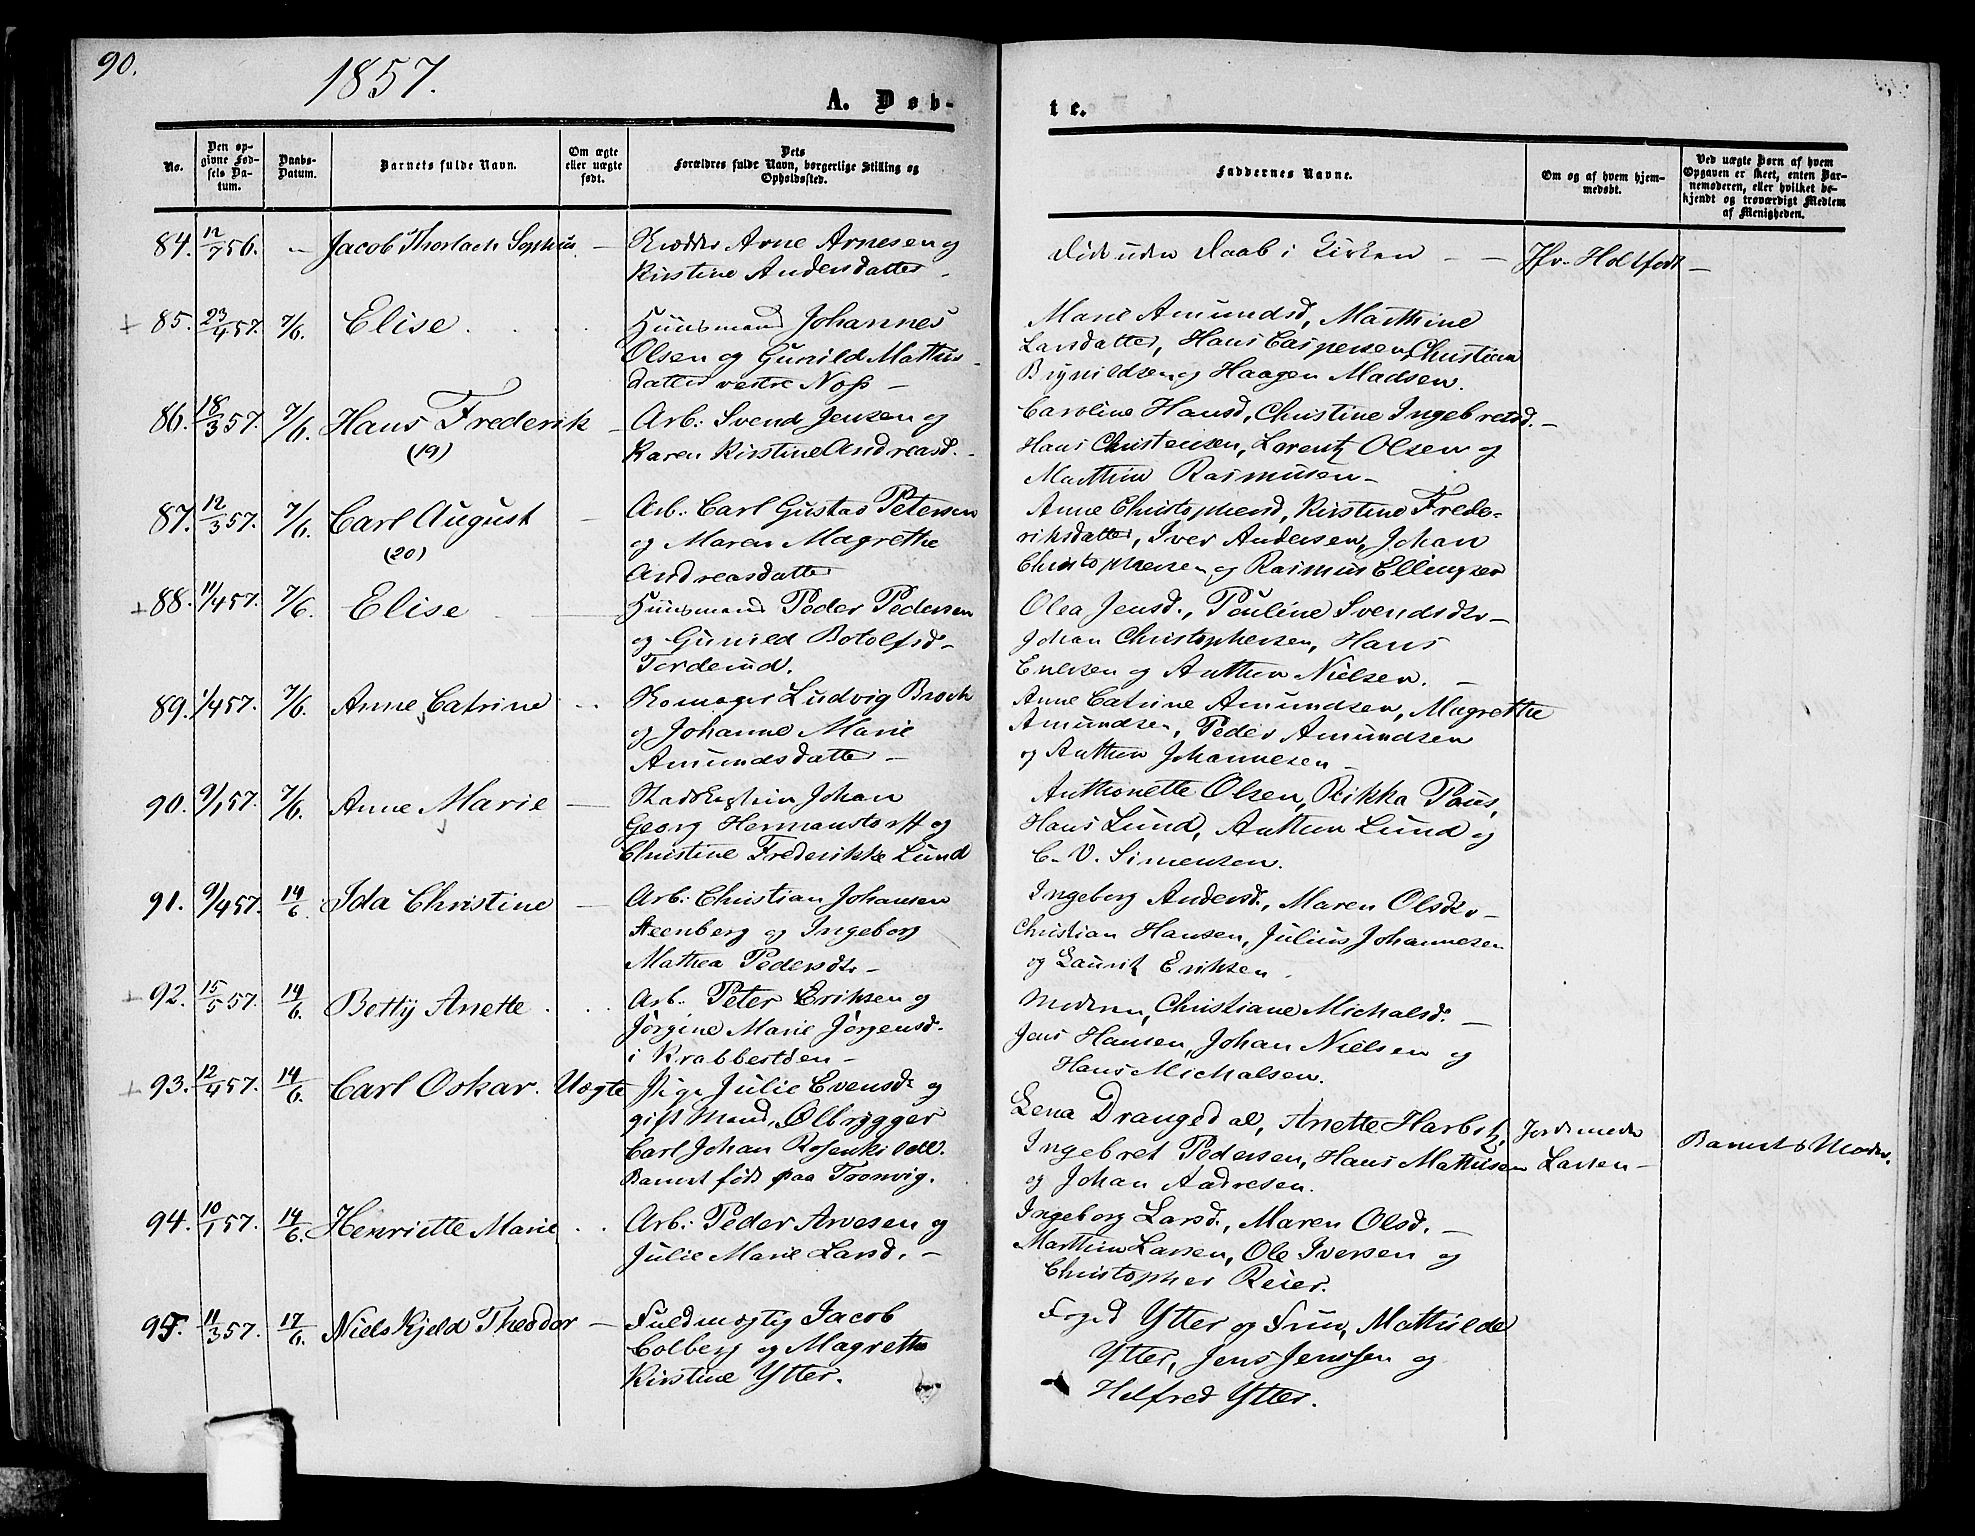 90.
1857.
A. Døb-
te.
No.
Den op-
givne Fød-
sels Da-
tum.
Daabs-
Datum.
Barnets fulde Navn.
Om ægte
eller uægte
født.
Dets
Forældres fulde Navn, borgerlige Stilling og
Opholdssted.
Faddernes Navne.
Om og af hvem hjem-
medøbt.
Ved uægte Børn af hvem
Opgaven er skeet, enten Bar-
nemoderen, eller hvilket be-
kjendt og troværdigt Medlem
af Menigheden.
84. 12/7 56. – Jacob Thorlach Sophus –
Arne Arnesen og
Kirstine Andersdatter –
uden Daab i Kirken – – Holtfodt –
85. 23/4 57. 7/6. Elise
Huusmand Johannes
Olsen og Gunild Mathis-
datter vestre Noss –
Marie Amundsd, Marthine
Larsdatter, Hans Caspersen, Christian
Brynildsen og Haagen Madsen.
86. 18/3 57. 7/6. Hans Frederik –
(19)
Arb: Svend Jensen og
Karen Kirstine Andreasd. –
Caroline Hansd, Christine Ingebretsd. –
Hans Christensen, Lorentz Olsen og
Marthin Rasmusen –
87. 12/3 57. 7/6. Carl August –
(20)
Arb: Carl Gustav Petersen
og Maren Magrethe
Andreasdatter
Anne Christophersd, Kirstine Frede-
riksdatter, Iver Andersen, Johan
Christophersen og Rasmus Ellingsen
88. 11/4 57. 7/6. Elise –
Huusmand Peder Pedersen
og Gunild Botolfsd –
Torderud.
Olea Jensd., Pauline Svendsdtr –
Johan Christophersen, Hans
Enersen og Anthon Nielsen. –
89. 1/4 57. 7/6. Anne Catrine
Ludvig Broch
og Johanne Marie
Amundsdatter –
Anne Catrine Amundsen, Magrethe
Amundsen, Peder Amundsen
og Anthon Johannesen –
90. 9/1 57. 7/6. Anne Marie –
Johan
Georg Hermanstorff og
Christine Frederikke Lund
Anthonette Olsen, Rikka Paus,
Hans Lund, Anthon Lund og
C. V. Simensen.
91. 9/4 57. 14/6 Ida Christine –
Arb: Christian Johansen
Steenberg og Ingeborg
Mathea Pedersdtr –
Ingeborg Andersd., Maren Olsdtr –
Christian Hansen, Julius Johannesen
og Lauritz Eriksen.
92. 15/5 57. 14/6. Betty Anette
Arb. Peter Eriksen og
Jörgine Marie Jörgensd.
i Krabbestöen –
Moderen, Christiane Michalsd. –
Jens Hansen, Johan Nielsen og
Hans Michalsen.
93. 12/4 57. 14/6. Carl Oskar. Uægte
Pige Julie Evensd. og
gift Mand, Ölbrygger
Carl Johan Rosenkilde.
Barnet født paa Tronvig.
Lena Drangedal, Anette Harbitz,
Ingebret Pedersen, Hans Mathisen
og Johan Andresen.
Jordemoder
Larsen –
Barnets Moder.
94. 10/1 57. 14/6. Henriette Marie
Arb: Peder Arvesen og
Julie Marie Larsd. –
Ingeborg Larsd., Maren Olsd. –
Marthin Larsen, Ole Iversen og
Christopher Reier.
95. 11/3 57. 17/6. Niels Kjeld Theodor –
Fuldmægtig Jacob
Colberg og Magrethe
Kirstine Ytter.
Foged Ytter og Frue, Mathilde
Ytter, Jens Jenssen og
Helfred Ytter.